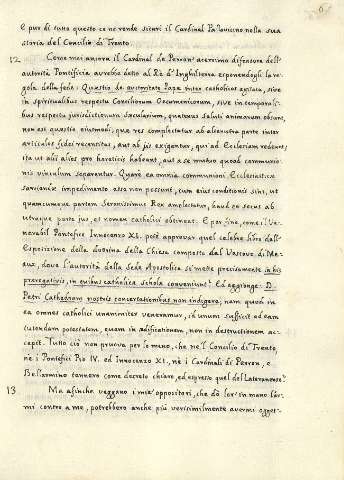 6
e pur di tutto questo ce ne rende sicuri il Cardinal Palavicino nella sua
storia del Concilio di Trento.
12 Come mai ancora il Cardinal de Perron acerrimo difensore dell'
autorità Pontificia avrebbe detto al Rè d'Inghilterra esponendogli la re-
gola della fede: Quaestio de auctoritate Papae inter catholicos agitata, sive
in spiritualibus respectu Conciliorum Oecumenicorum, sive in temporali-
bus respectu jurisdictionum saecularium, quatenus saluti animarum obsunt,
non est quaestio ejusmodi, quae res complectatur ab alterutra parte inter
articulos fidei recensitas, aut ab iis exigantur, qui ad Ecclesiam redeunt,
ita ut alii alios pro haereticis habeant, aut a se mutuo quoad communio-
nis vinculum separentur. Quare ea omnia communioni Ecclesiasticae
sarciendae impedimento esse non possunt, cum ejus conditionis sint, ut
quamcumque partem Serenissimus Rex amplectatur, haud eo secus ab
utraque parte jus, et nomen catholici obtineat. E per fine, come il Ve-
nerabil Pontefice Innocenzo XI. potè approvar quel celebre libro dell'
Esposizione della dottrina della Chiesa composto dal Vescovo di Me-
aux, dove l'autorità della Sede Apostolica si mette precisamente in his
praerogativis, in quibus catholica schola conveniunt? Ed aggiunge: D.
Petri Cathedram nostris concertationibus non indigere, nam quod in
ea omnes catholici unanimiter veneramur, id unum sufficit ad eam
tuendam potestatem, quam in aedificationem, non in destructionem ac-
cepit. Tutto ciò non pruova per lo meno, che nè 'l Concilio di Trento,
nè i Pontefici Pio IV. ed Innocenzo XI., nè i Cardinali di Perron, e
Bellarmino tennero come decreto chiaro, ed espresso quel del Lateranense?
13 Ma affinchè veggano i miei oppositori, che dò lor' in mano l'ar-
mi contro a me, potrebbero anche più verisimilmente avermi ogget-